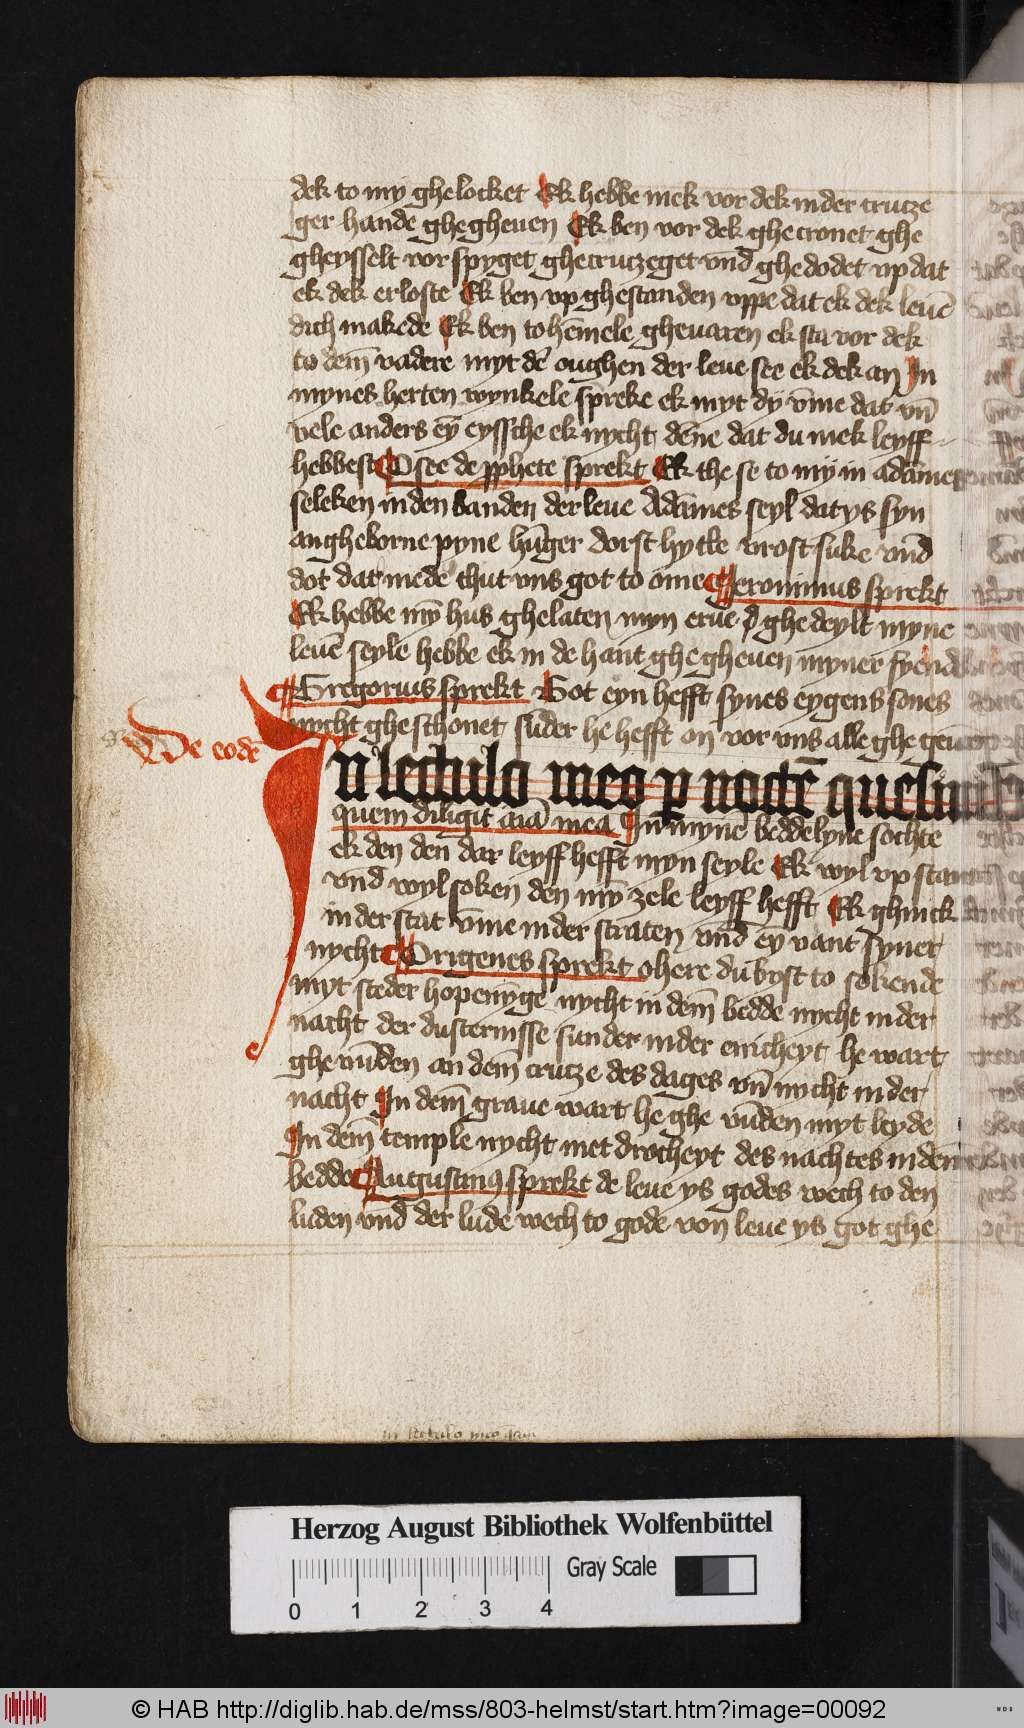 dek to my ghelocket Ek hebbe mek vor dek in der crutze
ger hande ghegheuen Ek ben vor dek ghecronet ghe
gheysselt vorspyget ghecrutzeget vnd ghedodet vp dat
ek dek erloste Ek ben vp ghestanden vppe dat ek dek leuē
dich makede Ek ben to hēmele gheuaren ek sta vor dek
to dem̄ vadere myt dē oughen der leue see ek dek an In
mynes herten wynkele spreke ek myt dy vm̄e dat vn̄
vele anders ey̅ eyssche ek nycht dēne dat du mek leyff
hebbest Osee de ꝓphete sprekt Ek the se to my in adames
seleken in den banden der leue Adāmes seyl dat ys syn
angheborne pyne hūger dorst hytte vrost suke vnd
dot dat mede thut vns got to ome Jeronimus sprekt
Ek hebbe my̅ hus ghelaten myn erue ghedeylt myne
leuē seyle hebbe ek in de hant ghegheuen myner fyende
Gregorius sprekt Got eyn hefft synes eygens sones
nycht gheschonet sūder he hefft on vor vns alle ghegeuē
De eodē
In lectulo meo ꝑ noctē quesiui
quem diligit aīa mea In myne beddelyne sochte
ek den den dar leyff hefft myn seyle Ek wyl vp stan
vnd wyl soken den my̅ zele leyff hefft Ek ghinck
in der stat vm̄e in der straten vnd ey̅ vant syner
nycht Origenes sprekt o here du byst to sokende
myt steder hopenȳge nycht in dem̄ bedde nycht in der
nacht der dusternisse sunder in der enicheyt he wart
ghe vūden an dem̄ crutze des dages vn̄ nycht in der
nacht In dem̄ graue wart he ghe vūden myt leyde
In dem̄ temple nycht met drocheyt des nachtes in dem̄
bedde Augustinꝰ sprekt de leue ys godes wech to den
luden vnd der lude wech to gode von leue ys got ghe
in lectulo meo
Herzog August Bibliothek Wolfenbüttel
Gray Scale
0 1 2 3 4
© HAB http://diglib.hab.de/mss/803-helmst/start.htm?image=00092